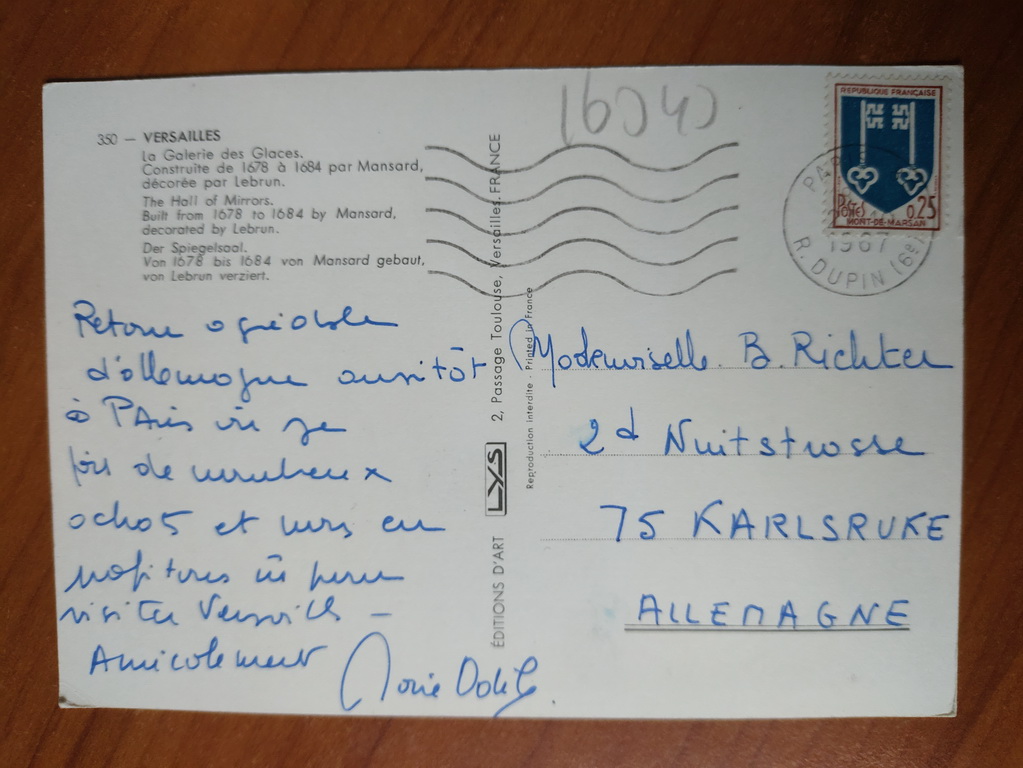 16343
350 — VERSAILLES
La Galerie des Glaces.
Construite de 1678 à 1684 par Mansard,
décorée par Lebrun.
The Hall of Mirrors.
Built from 1678 to 1684 by Mansard,
decorated by Lebrun.
Der Spiegelsaal.
Von 1678 bis 1684 von Mansard gebaut,
von Lebrun verziert.
Retour agréable
d'Allemagne aussitôt
à PAris où je
fais de nombreux
achats et nous en
profitons un peu
visiter Versailles —
Amicalement
Marie Odile
ÉDITIONS D'ART LYS 2, Passage Toulouse, Versailles. FRANCE
Reproduction interdite . Printed in France
RÉPUBLIQUE FRANÇAISE
POSTES 0,25
MONT-DE-MARSAN
1967
R. DUPIN (6e)
Mademoiselle. B. Richter
2d Nuitstrasse
75 KARLSRUKE
ALLEMAGNE